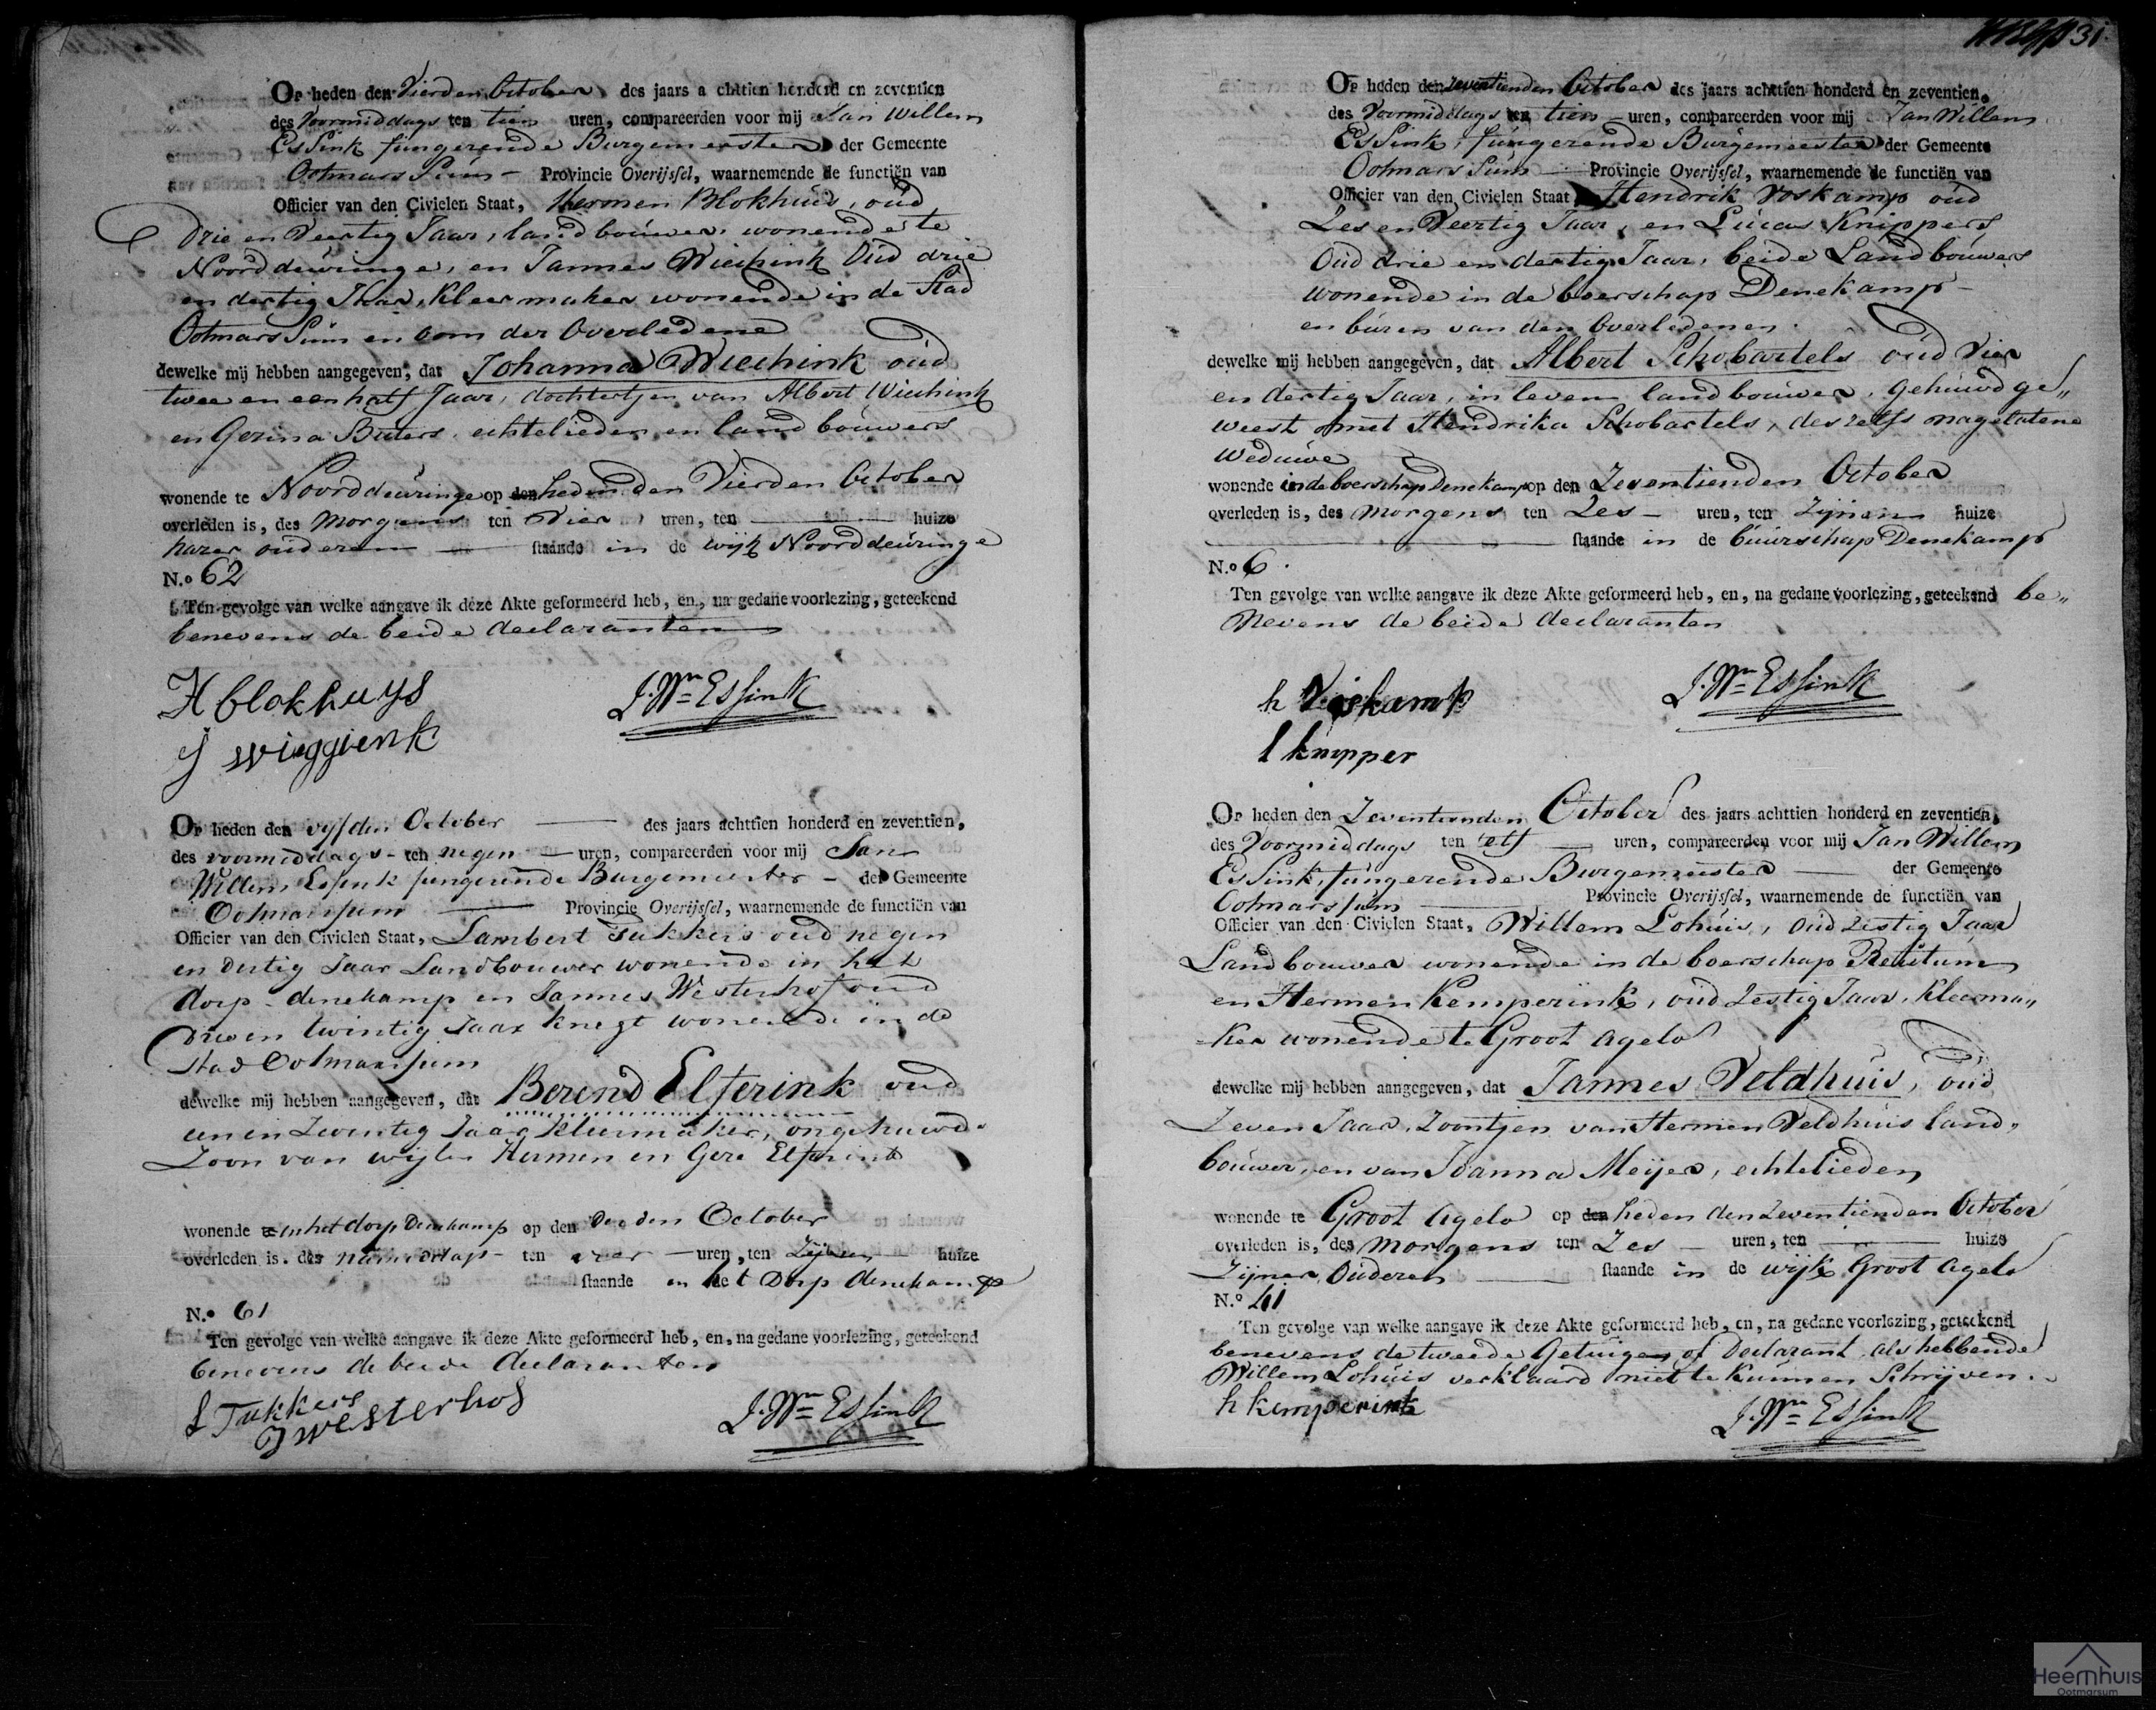 Op heden den Vierden October des jaars achttien honderd en zeventien
des Voormiddags ten tien uren, compareerden voor mij Jan Willem
Essink fungerende Burgemeester der Gemeente
Ootmarssum - Provincie Overijssel, waarnemende de functiën van
Officier van den Civielen Staat, Hermen Blokhuis, oud
Drie en Veertig Jaar, landbouwer, wonende te
Noorddeuringe, en Jannes Wiechink Oud drie
en dertig Jaar, Kleermaker wonende in de Stad
Ootmarssum en oom der Overledene
dewelke mij hebben aangegeven, dat Johanna Wiechink oud
twee en een half Jaar, dochtertjen van Albert Wiechink
en Gezina Buters, echtelieden en landbouwers
wonende te Noorddeuringe op den heden den Vierden October
overleden is, des Morgens ten Vier uren, ten huize
harer ouderen staande in de wijk Noorddeuringe
N.o 62
Ten gevolge van welke aangave ik deze Akte geformeerd heb, en, na gedane voorlezing, geteekend
benevens de beide declaranten
H blokhuys
J. Wm Essink
J wieggienk
Op heden den vyfden October des jaars achttien honderd en zeventien,
des voormiddags - ten negen - uren, compareerden voor mij Jan
Willem Essink fungerende Burgemeester - der Gemeente
Ootmarssum Provincie Overijssel, waarnemende de functiën van
Officier van den Civielen Staat, Lambert Tukkers oud negen
en dertig Jaar Landbouwer wonende in het
dorp denekamp en Jannes Westerhof oud
Drie en twintig Jaar knegt wonende in de
Stad Ootmarssum
dewelke mij hebben aangegeven, dat Berend Elferink oud
een en Zeventig Jaar Kleermaker, ongehuwd
Zoon van wijlen Hermen en Gere Elferink
wonende te in het dorp Denekamp op den Derden October
overleden is, des namiddags - ten vier - uren, ten Zijnen huize
staande in het Dorp denekamp
N.o 61
Ten gevolge van welke aangave ik deze Akte geformeerd heb, en, na gedane voorlezing, geteekend
benevens de beide declaranten
L Tukkers
J westerhof
J. Wm Essink
31.
Op heden den zeventienden October des jaars achttien honderd en zeventien,
des Voormiddags ten tien uren, compareerden voor mij Jan Willem
Essink, fungerende Burgemeester der Gemeente
Ootmarssum Provincie Overijssel, waarnemende de functiën van
Officier van den Civielen Staat Hendrik Voskamp oud
Zes en Veertig Jaar, en Lucas Knippers
Oud drie en dertig Jaar, beide Landbouwers
wonende in de boerschap Denekamp -
en buren van den Overledenen.
dewelke mij hebben aangegeven, dat Albert Schobartels oud Vier
en dertig Jaar, in leven landbouwer, gehuwd ge„
weest met Hendrika Schobartels, deszelfs nagelatene
Weduwe
wonende in de boerschap Denekamp op den Zeventienden October
overleden is, des Morgens ten Zes - uren, ten Zijnen huize
staande in de buurschap Denekamp
N.o 6.
Ten gevolge van welke aangave ik deze Akte geformeerd heb, en, na gedane voorlezing, geteekend be„
nevens de beide declaranten
h Voskamp
J. Wm Essink
l knipper
Op heden den Zeventienden October des jaars achttien honderd en zeventien,
des Voormiddags ten elf uren, compareerden voor mij Jan Willem
Essink, fungerende Burgemeester der Gemeente
Ootmarssum Provincie Overijssel, waarnemende de functiën van
Officier van den Civielen Staat, Willem Lohuis, oud zestig Jaar
Landbouwer wonende in de boerschap Reutum
en Hermen Kemperink, oud Zestig Jaar, Kleerma„
ker wonende te Groot Agelo
dewelke mij hebben aangegeven, dat Jannes Veldhuis, oud
Zeven Jaar, Zoontjen van Hermen Veldhuis land„
bouwer, en van Joanna Meijer, echtelieden
wonende te Groot Agelo op den heden den Zeventienden October
overleden is, des Morgens ten Zes - uren, ten huize
Zijner Ouderen staande in de wijk Groot Agelo
N.o 41
Ten gevolge van welke aangave ik deze Akte geformeerd heb, en, na gedane voorlezing, geteekend
benevens de tweede Getuigen of Declarant, als hebbende
Willem Lohuis verklaard niet te kunnen Schrijven.
h kemperink
J. Wm Essink
Heemhuis
Ootmarsum